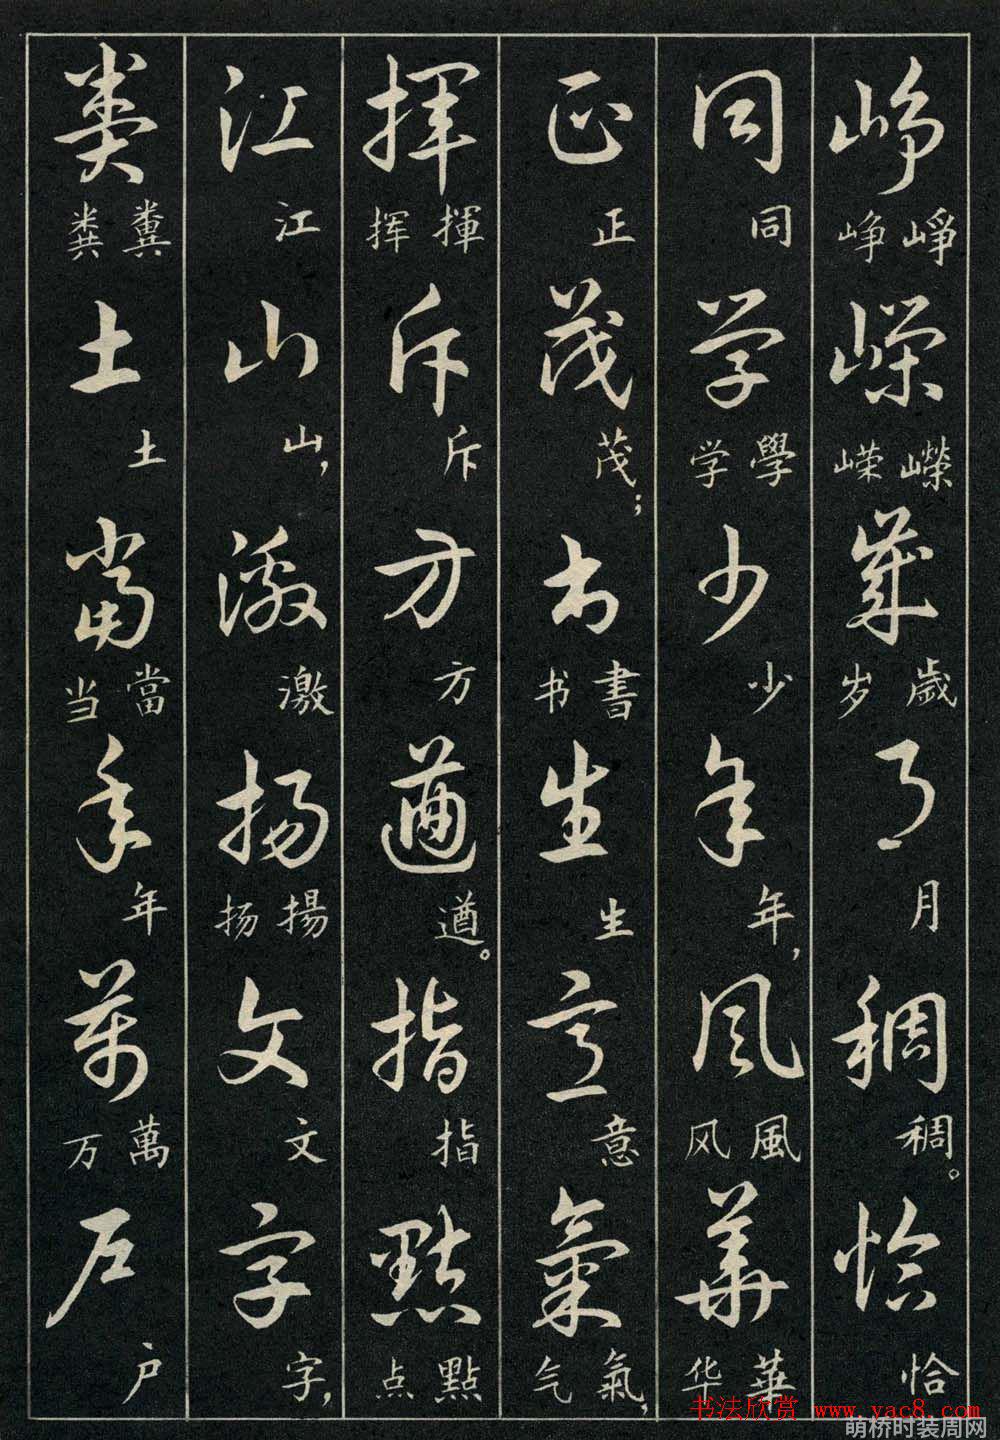 崢 崢峥 嶸 嶸嵘 歲 歲岁 月 月 稠 稠。 恰 恰
同 同 学 學学 少 少 年 年， 風 風风 華 華华
正 正 茂 茂； 书 書书 生 生 意 意 氣 氣，气
揮 揮挥 斥 斥 方 方 遒 遒。 指 指 點 點点
江 江 山 山， 激 激 揚 揚扬 文 文 字 字，
粪 糞粪 土 土 當 當当 年 年 萬 萬万 户 户
书法欣赏 www.yac8.com
萌桥时装周网